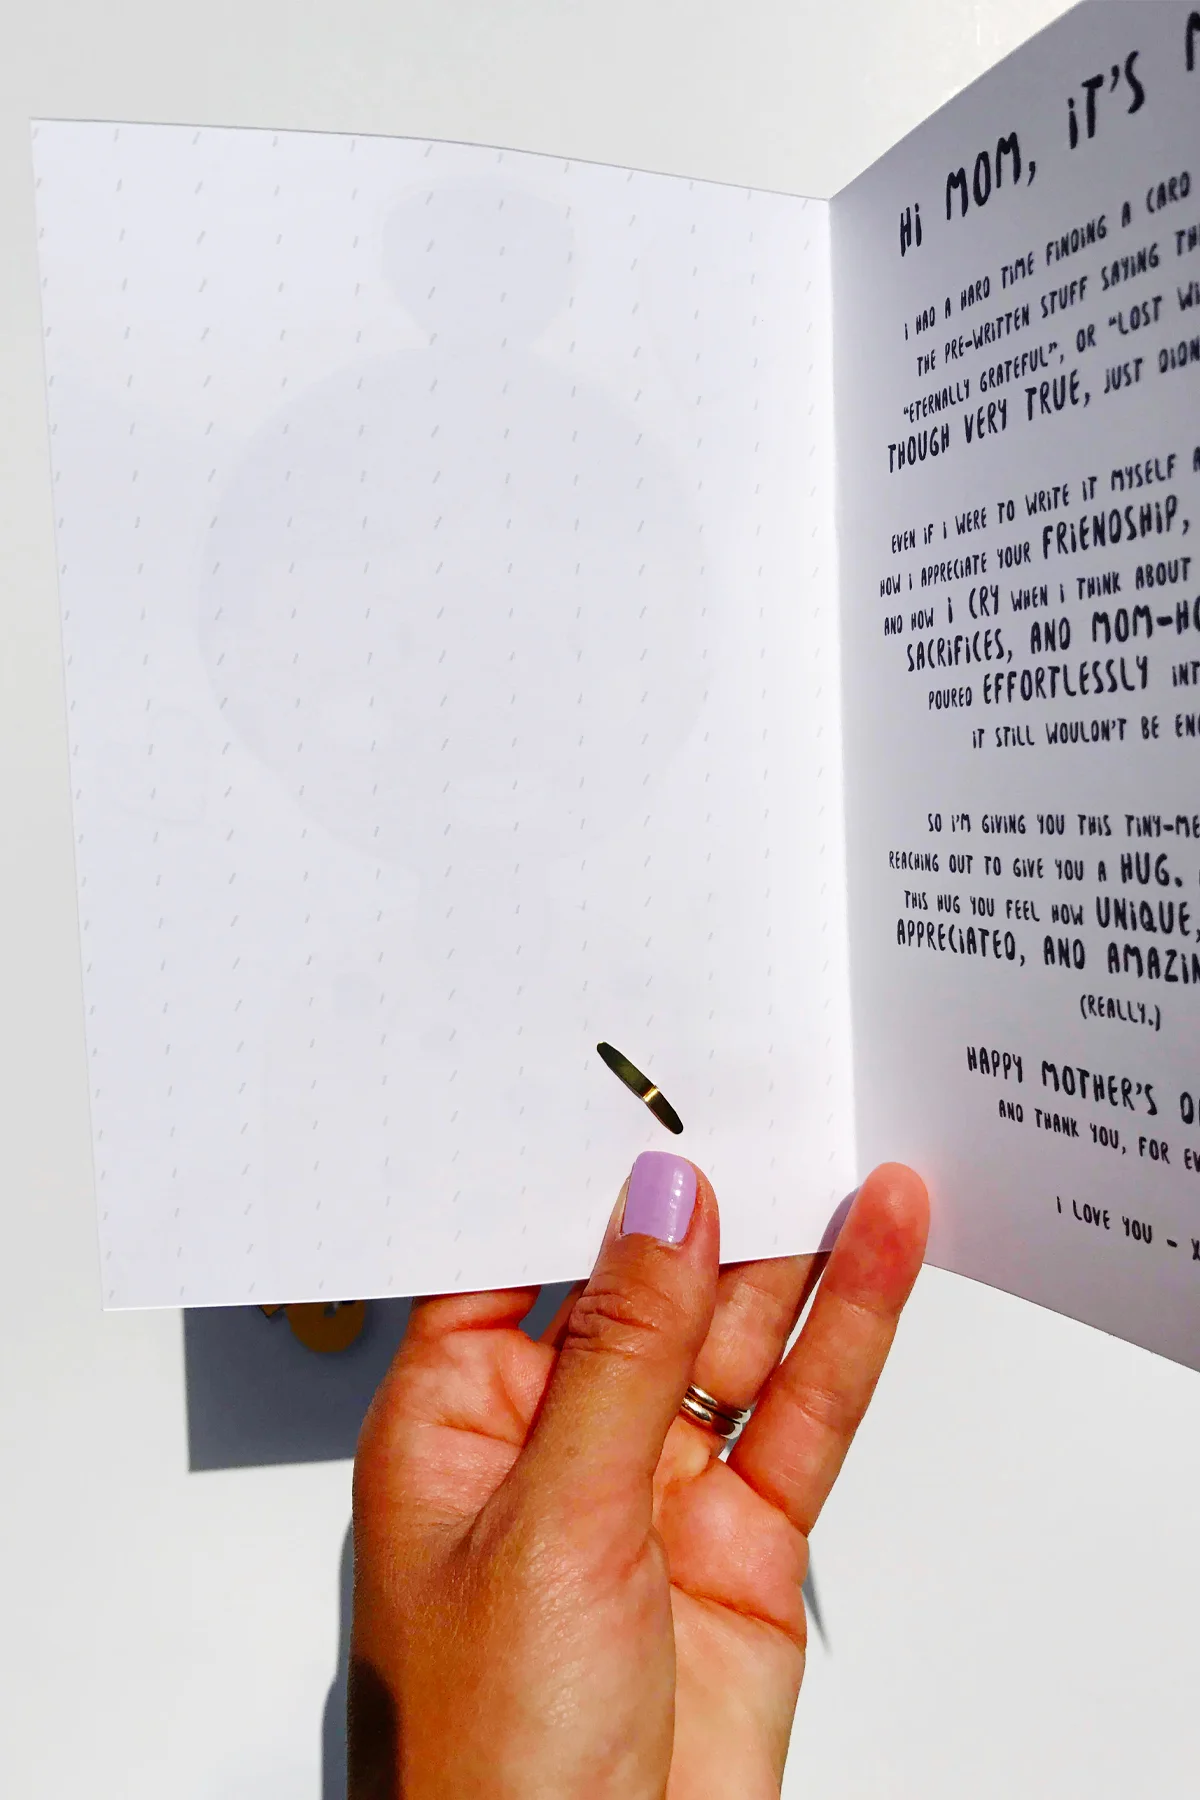 Hi MOM, iT'S
i HAD A HARD TiME FiNDiNG A CARD
THE PRE-WRiTTEN STUFF SAYiNG
"ETERNALLY GRATEFUL", OR "LOST
THOUGH VERY TRUE, JUST
EVEN iF i WERE TO WRiTE iT MYSELF
HOW i APPRECiATE YOUR FRiENDSHiP,
AND HOW i CRY WHEN i THiNK ABOUT
SACRiFiCES, AND
POURED EFFORTLESSLY
iT STiLL WOULDN'T BE
SO i'M GiVING YOU THiS
REACHiNG OUT TO GiVE YOU A HUG.
THiS HUG YOU FEEL HOW UNiQUE,
APPRECiATED, AND
(REALLY.)
HAPPY MOTHER'S
AND THANK YOU, FOR
i LOVE YOU -